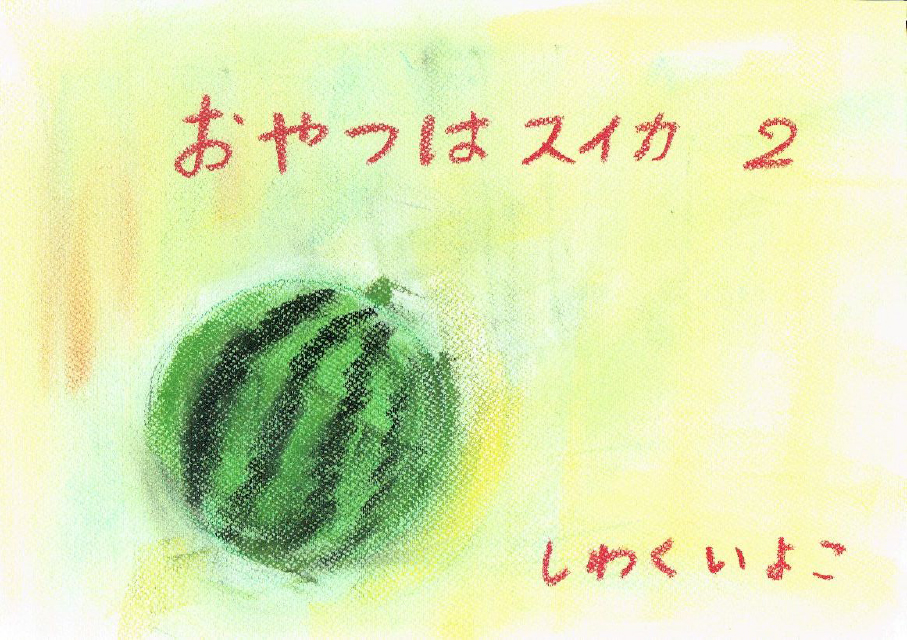 おやつはスイカ 2
しわくいよこ